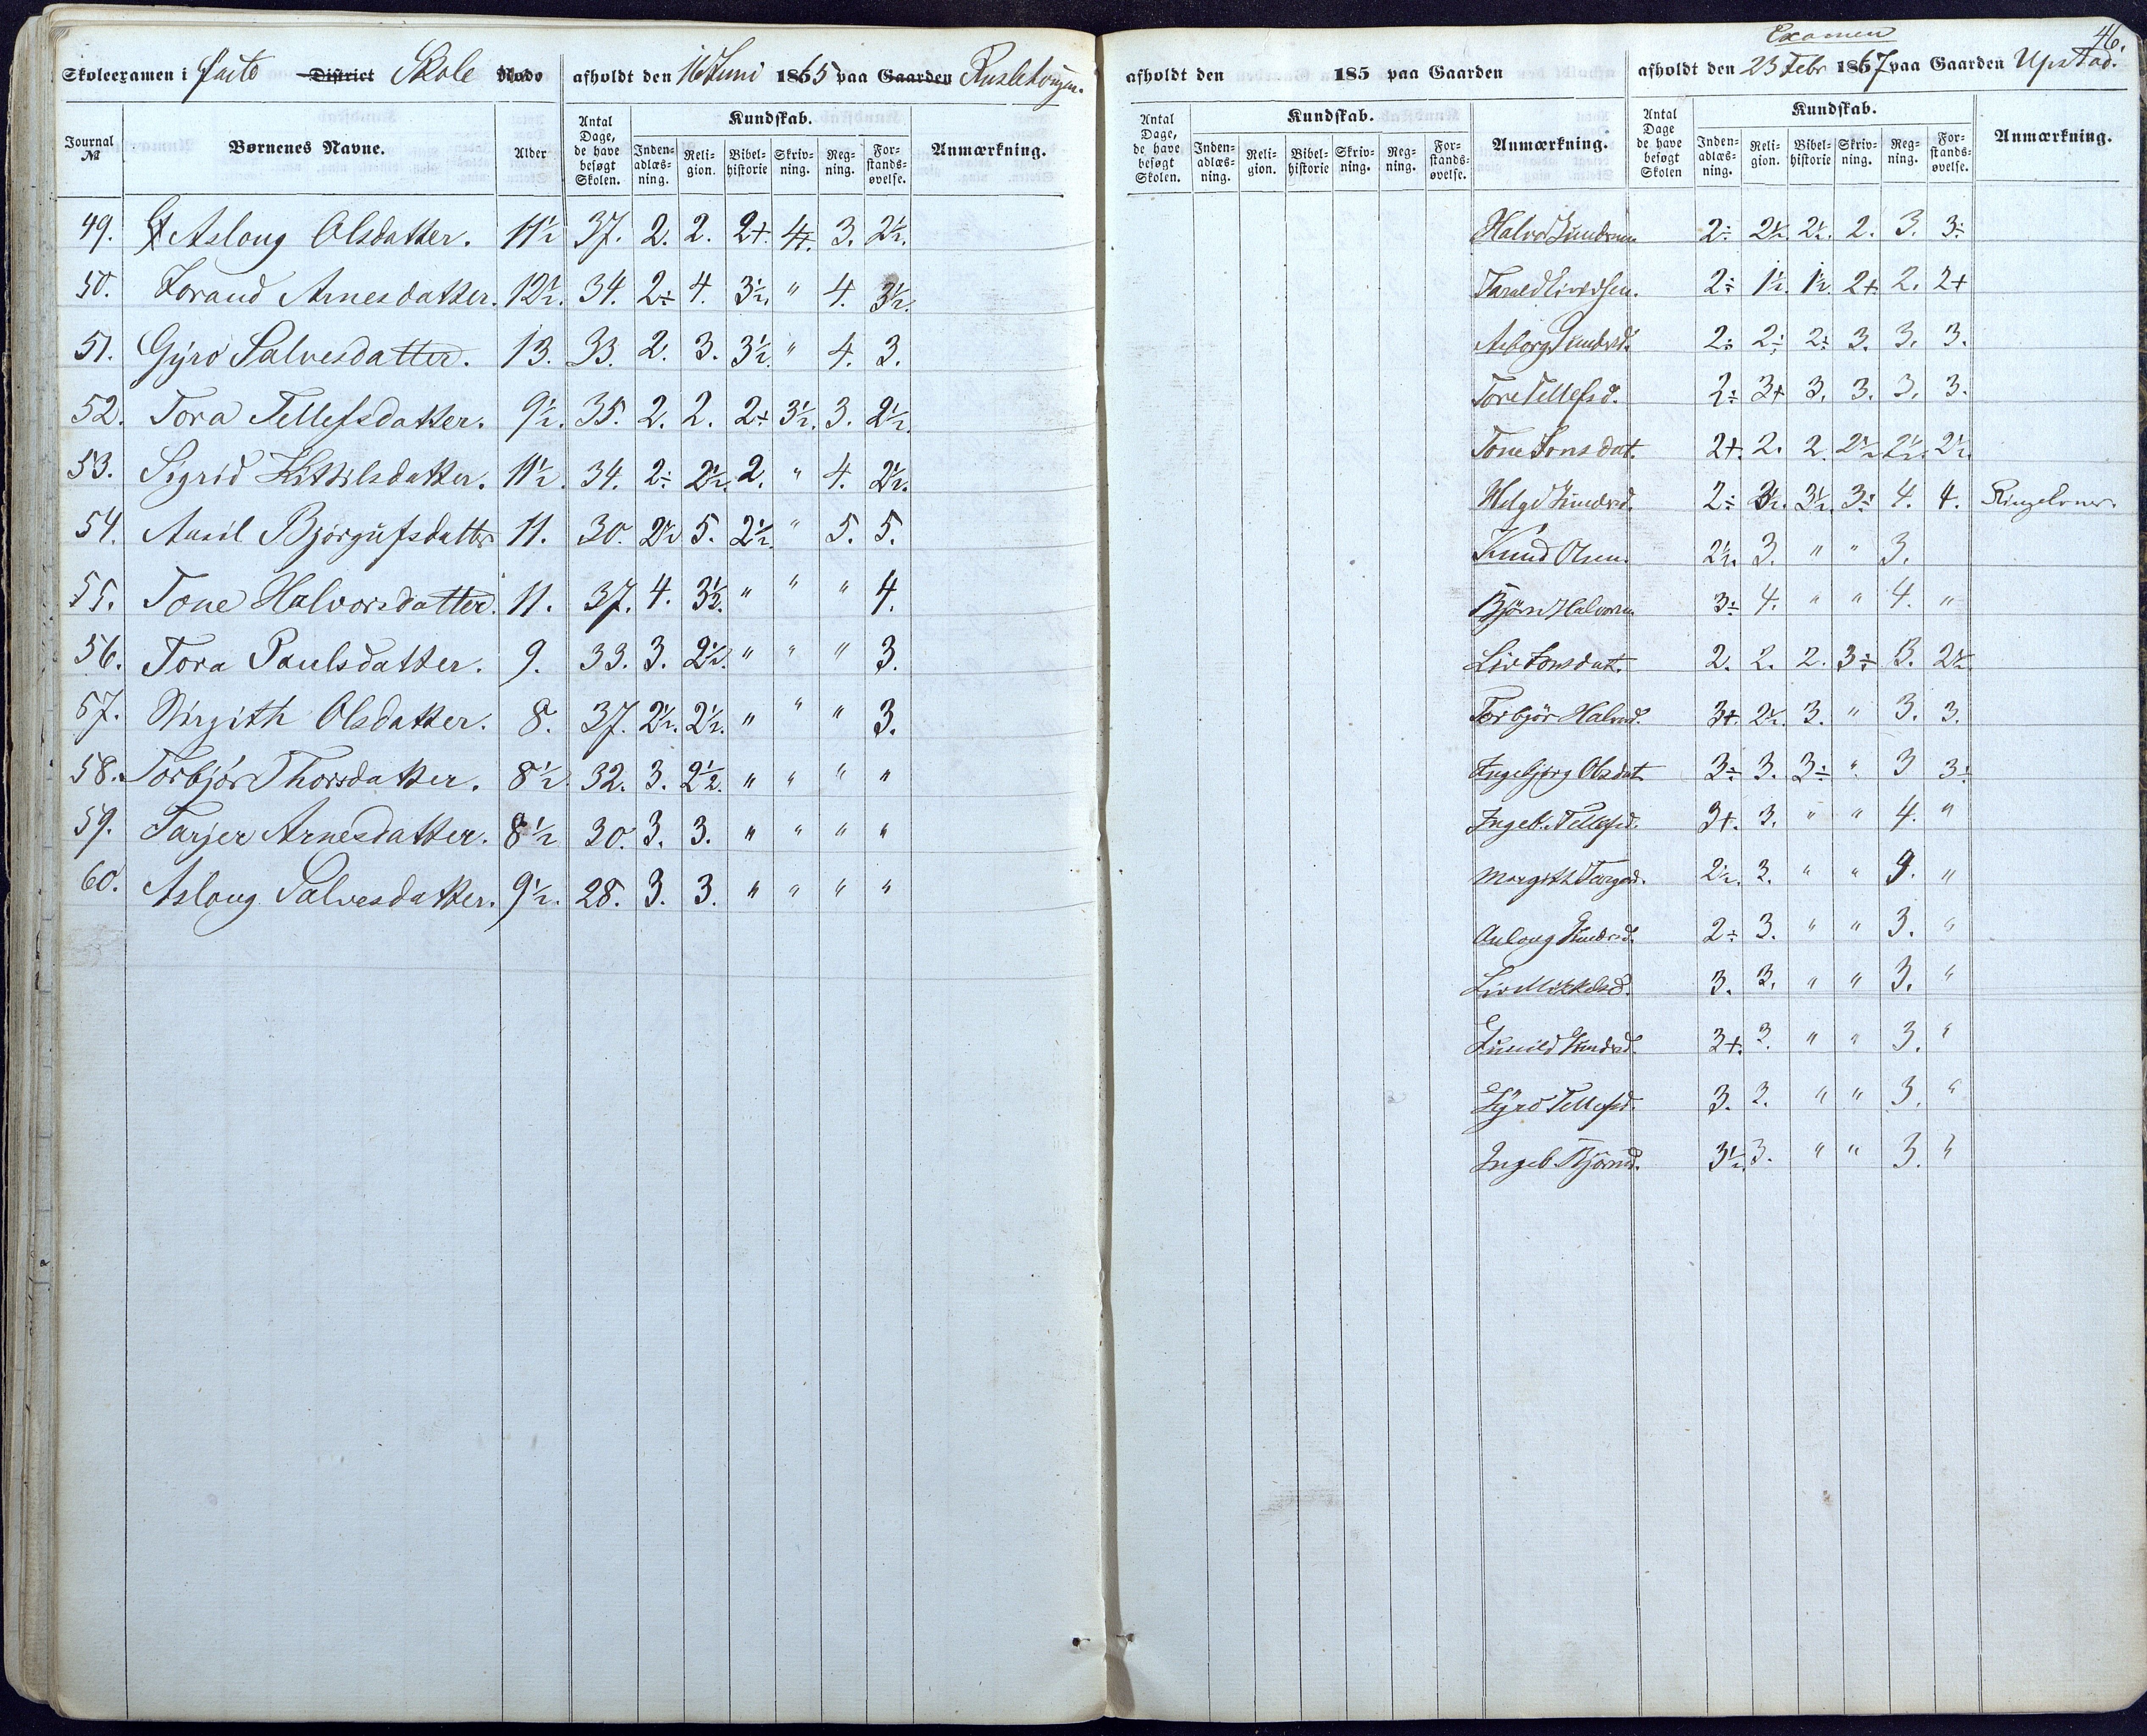 Skoleexamen i faste District Skole Rode afholdt den 16 Juni 1865 paa Gaarden
Journal № Børnenes Navne. Alder Antal Dage, de have besøgt Skolen. Kundskab. Inden-adlæs-ning. Reli-gion. Bibel-historie Skriv-ning. Reg-ning. For-stands-øvelse. Anmærkning.
49. Asloug Olsdatter. 11½ 37. 2. 2. 2+. 4+. 3. 2½.
50. Torand Arnesdatter. 12½. 34. 2÷ 4. 3½. " 4. 3½.
51. Gyro Salvesdatter. 13. 33. 2. 3. 3½. " 4. 3.
52. Tora Tellefsdatter. 9½. 35. 2. 2. 2÷ 3½. 3. 2½.
53. Sigrid Kittilsdatter. 11½. 34. 2÷ 2½. 2. " 4. 2½.
54. Ansil Bjørgufsdatter 11. 30. 2½ 5. 2½. " 5. 5.
55. Tone Halvorsdatter. 11. 37. 4. 3½. " " " 4.
56. Tora Paulsdatter. 9. 33. 3. 2½. " " " 3.
57. Birgith Olsdatter. 8. 37. 2½. 2½. " " " 3.
58. Torbjør Thorsdatter. 8½. 32. 3. 2½. " " " "
59. Tarjer Arnesdatter. 8½ 30. 3. 3. " " " "
60. Asloug Salvesdatter. 9½. 28. 3. 3. " " " "
46.
Examen
afholdt den 185 paa Gaarden afholdt den 23 Febr 1867 paa Gaarden Upstad.
Antal Dage, de have besøgt Skolen. Kundskab. Inden-adlæs-ning. Reli-gion. Bibel-historie Skriv-ning. Reg-ning. For-stands-øvelse. Anmærkning. Antal Dage de have besøgt Skolen Kundskab. Inden-adlæs-ning. Reli-gion. Bibel-historie Skriv-ning. Reg-ning. For-stands-øvelse. Anmærkning.
Halvor Gunders. 2÷ 2½. 2½. 2. 3. 3÷
Tarald 2÷ 1½. 1½. 2+. 2. 2+
Asborg Gundersd. 2÷ 2÷ 2÷ 3. 3. 3.
Tore Tellefsd. 2÷ 3+ 3. 3. 3. 3.
Tone Jonsdat. 2+. 2. 2. 2½ 2½. 2½.
Helge 2÷ 3½. 3½. 3÷ 4. 4.
Knud Olsen. 2½. 3. " " 3.
Bjørn Halvors. 3÷ 4. " " 4. "
Liv Jonsdat. 2. 2. 2. 3÷ 3. 2½
Torbjør Halvd. 3+. 2½. 3. " 3. 3.
Ingebjørg Olsdat 3÷ 3. 3÷ " 3 3÷
Ingeb. Tellefsd. 3+. 3. " " 4. "
Margith Targesd. 2½. 3. " " "
Aslong 2÷ 3. " " 3. "
Liv Mikkelsd. 3. 3. " " 3. "
Gunild 3+. 3. " " 3. "
Gyro Tellefsd. 3. 3. " " 3. "
Ingeb. Bjørnsd. 3½. 3. " " 3. "